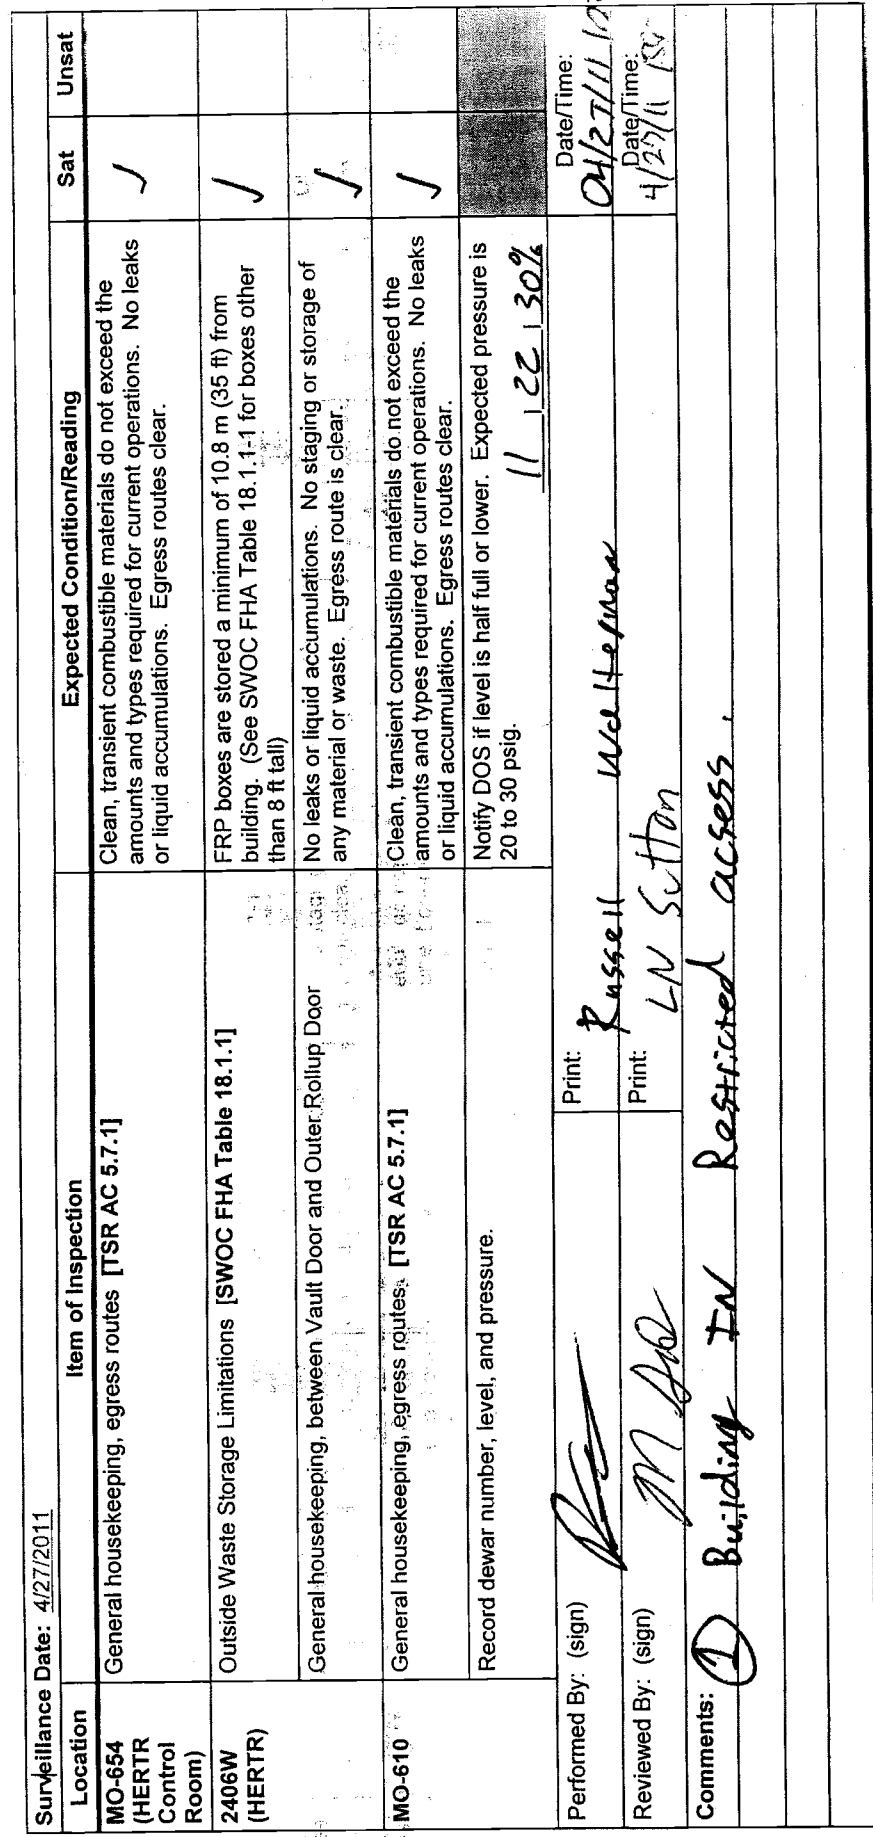 Surveillance Date: 4/27/2011
Location Item of Inspection Expected Condition/Reading Sat Unsat
MO-654
(HERTR
Control
Room)
General housekeeping, egress routes [TSR AC 5.7.1]
Clean, transient combustible materials do not exceed the
amounts and types required for current operations. No leaks
or liquid accumulations. Egress routes clear.
✓
2406W
(HERTR)
Outside Waste Storage Limitations [SWOC FHA Table 18.1.1]
FRP boxes are stored a minimum of 10.8 m (35 ft) from
building. (See SWOC FHA Table 18.1.1-1 for boxes other
than 8 ft tall)
✓
General housekeeping, between Vault Door and Outer Rollup Door
No leaks or liquid accumulations. No staging or storage of
any material or waste. Egress route is clear.
✓
MO-610
General housekeeping, egress routes [TSR AC 5.7.1]
Clean, transient combustible materials do not exceed the
amounts and types required for current operations. No leaks
or liquid accumulations. Egress routes clear.
✓
Record dewar number, level, and pressure.
Notify DOS if level is half full or lower. Expected pressure is
20 to 30 psig.
11 , 22 , 30%
Performed By: (sign) Print: Russell Walterman Date/Time: 04/27/11
Reviewed By: (sign) Print: LN Sutton Date/Time: 4/27/11
Comments: 1 Building IN Restricted acsess.